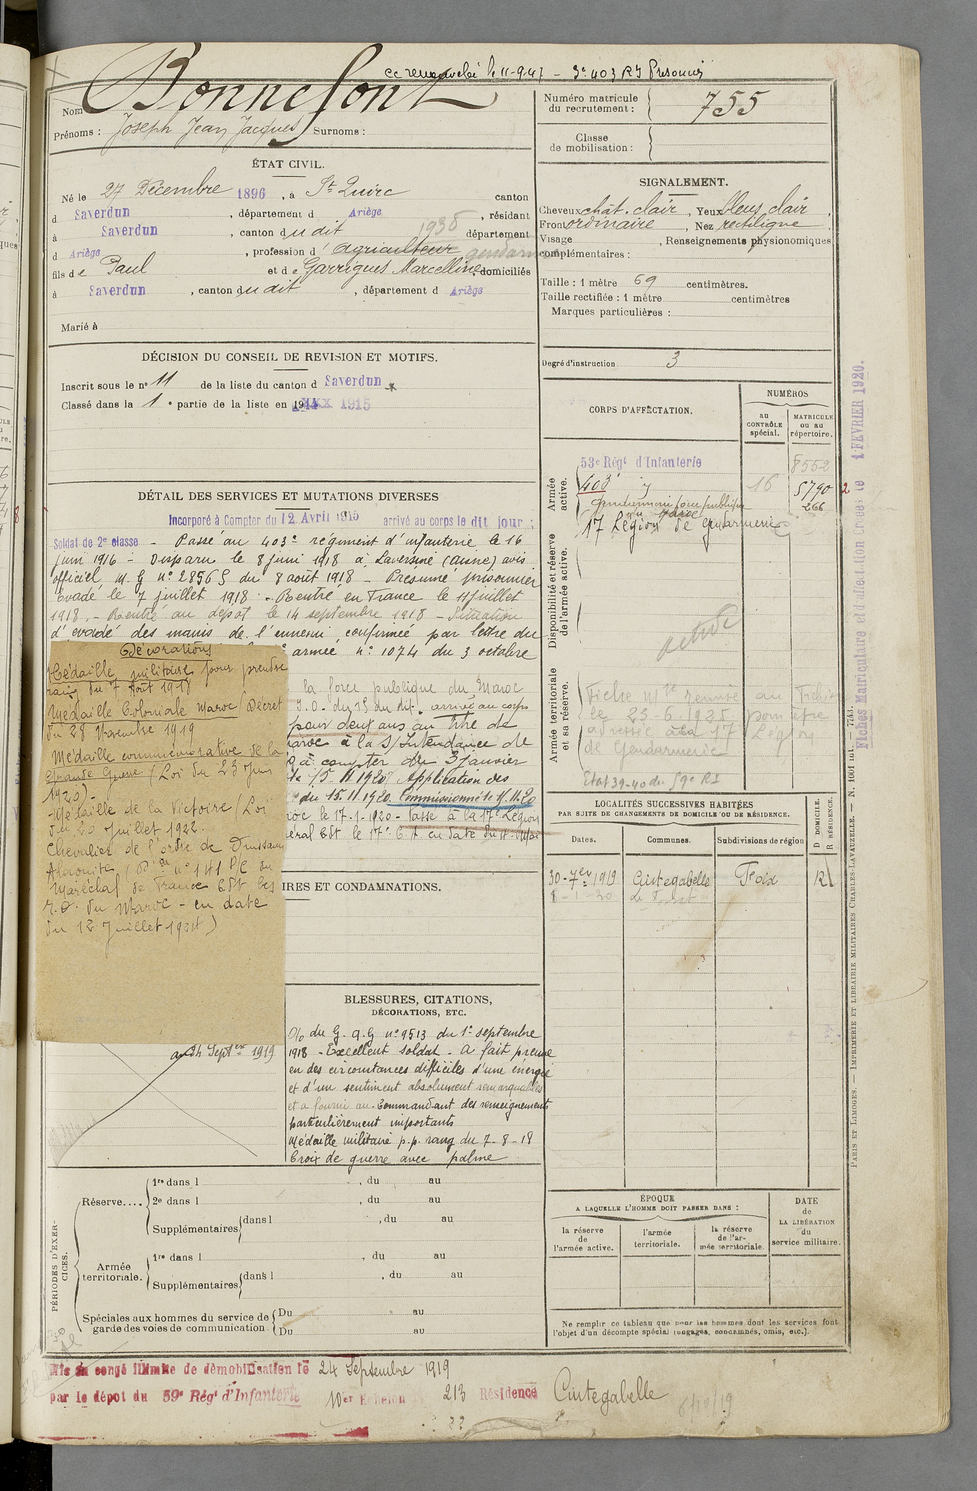 Bonnefont
Nom
Prénoms : Joseph Jean Jacques Surnoms :
ÉTAT CIVIL.
Né le 27 Décembre 1896, à St Quirc canton
d Saverdun, département d Ariège, résidant
à Saverdun, canton du dit 1938 département
d Ariège, profession d'agriculteur gendarme
fils de Paul et de Garrigues Marcelline domiciliés
à Saverdun, canton du dit, département d Ariège
Marié à
DÉCISION DU CONSEIL DE REVISION ET MOTIFS.
Inscrit sous le n° 11 de la liste du canton d Saverdun
Classé dans la 1e partie de la liste en 1915
DÉTAIL DES SERVICES ET MUTATIONS DIVERSES
Incorporé à Compter du 12 Avril 1915 arrivé au corps le dit jour
Soldat de 2e classe - Passé au 403e régiment d'infanterie le 16
juin 1916 - Disparu le 8 juin 1918 à Laversine (Aisne) avis
officiel M.G n° 2856 S du 8 août 1918 - Présumé prisonnier
Evadé le 7 juillet 1918 - Rentré en France le 11 juillet
1918. - Rentré au dépôt le 14 septembre 1918 - Situation
d'évadé des mains de l'ennemi confirmée par lettre du
armée n° 1074 du 3 octobre
la force publique du Maroc
arrivé au corps
pour deux ans au titre de
Maroc à la S/Intendance de
à compter du 3 Janvier
15.11.1920 Application des
du 15.11.1920. Commissionné le 4.11.20
le 17-1-1920 - Passé à la 17e Légion
Décorations
Médaille militaire pour prendre
rang du 7 Août 1918
Médaille Coloniale Maroc Décret
du 28 Novembre 1919
Médaille commémorative de la
Grande Guerre (Loi du 23 Juin
1920) -
- Médaille de la Victoire (Loi
du 20 Juillet 1922.
Chevalier de l'ordre de Ouissam
Alaouite (n° 141 P/C du
Maréchal de France Cdt les
T.O. du Maroc - en date
du 12 Juillet 1924)
IRES ET CONDAMNATIONS.
24 Septbre 1919
BLESSURES, CITATIONS,
DÉCORATIONS, ETC.
O/o du G.Q.G n° 9513 du 1er septembre
1918 - Excellent soldat - A fait preuve
en des circonstances difficiles d'une énergie
et d'un sentiment absolument remarquables
et a fourni au Commandant des renseignements
particulièrement importants
Médaille militaire p.p. rang du 7-8-18
Croix de guerre avec palme
PÉRIODES D'EXERCICES.
Réserve....
1re dans l , du au
2e dans l , du au
Supplémentaires dans l , du au
Armée territoriale.
1re dans l , du au
Supplémentaires dans l , du au
Spéciales aux hommes du service de garde des voies de communication
Du au
Du au
Mis en congé illimité de démobilisation le 24 Septembre 1919
par le dépôt du 59e Régt d'Infanterie 10er Echelon 213 Résidence Cintegabelle
le 11-9-47 - 3e 403 RI Prisonnier
Numéro matricule
du recrutement : 755
Classe
de mobilisation :
SIGNALEMENT.
Cheveux chât. clair, Yeux bleus clair,
Front ordinaire, Nez rectiligne
Visage , Renseignements physionomiques
complémentaires :
Taille : 1 mètre 69 centimètres.
Taille rectifiée : 1 mètre centimètres
Marques particulières :
Degré d'instruction 3
CORPS D'AFFECTATION.
NUMÉROS
au
CONTRÔLE
spécial.
MATRICULE
ou au
répertoire.
Armée
active.
53e Régt d'Infanterie 8552
403e 16 5790 2
Gendarmerie force publique
Maroc 266
17e Légion de Gendarmerie
Disponibilité et réserve
de l'armée active.
Armée territoriale
et sa réserve.
Fiche Mle remise au Fichier
le 23-6-1925 pour être
adressée à la 17e Légion
de Gendarmerie
Etat 39-40 du 59e RI
LOCALITÉS SUCCESSIVES HABITÉES
PAR SUITE DE CHANGEMENTS DE DOMICILE OU DE RÉSIDENCE.
Dates. Communes. Subdivisions de région
D DOMICILE.
R RÉSIDENCE.
30-7er 1919 Cintegabelle Foix R
8-1-20
ÉPOQUE
A LAQUELLE L'HOMME DOIT PASSER DANS :
la réserve
de
l'armée active.
l'armée
territoriale.
la réserve
de l'ar-
mée territoriale.
DATE
de
LA LIBÉRATION
du
service militaire.
Ne remplir ce tableau que pour les hommes dont les services font
l'objet d'un décompte spécial (engagés, condamnés, omis, etc.).
Fiches Matriculaire et d'affectation créées le 1 FEVRIER 1920.
PARIS ET LIMOGES. — IMPRIMERIE ET LIBRAIRIE MILITAIRES CHARLES-LAVAUZELLE. — N. 1001 tot. — 7753.